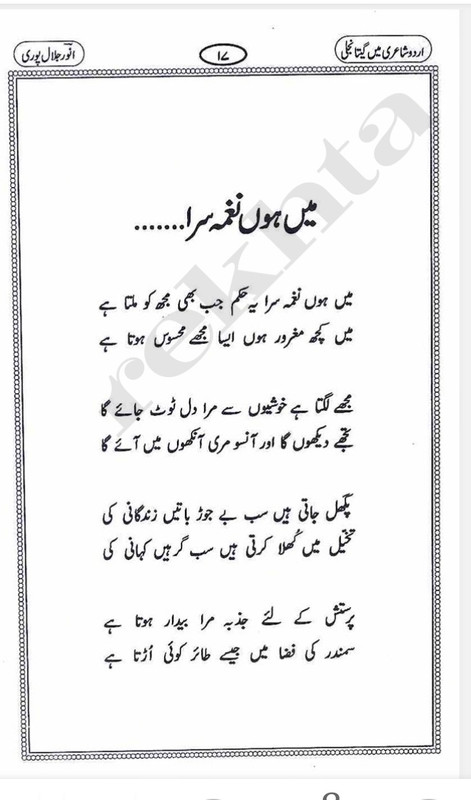 اردو شاعری میں گیتانجلی
۱۷
انور جلال پوری
میں ہوں نغمہ سرا.......
میں ہوں نغمہ سرا یہ حکم جب بھی مجھ کو ملتا ہے
میں کچھ مغرور ہوں ایسا مجھے محسوس ہوتا ہے
مجھے لگتا ہے خوشیوں سے مرا دل ٹوٹ جائے گا
تجھے دیکھوں گا اور آنسو مری آنکھوں میں آئے گا
پگھل جاتی ہیں سب بے جوڑ باتیں زندگانی کی
تخیل میں کُھلا کرتی ہیں سب گرہیں کہانی کی
پرستش کے لئے جذبہ مرا بیدار ہوتا ہے
سمندر کی فضا میں جیسے طائر کوئی اُڑتا ہے
rekhta